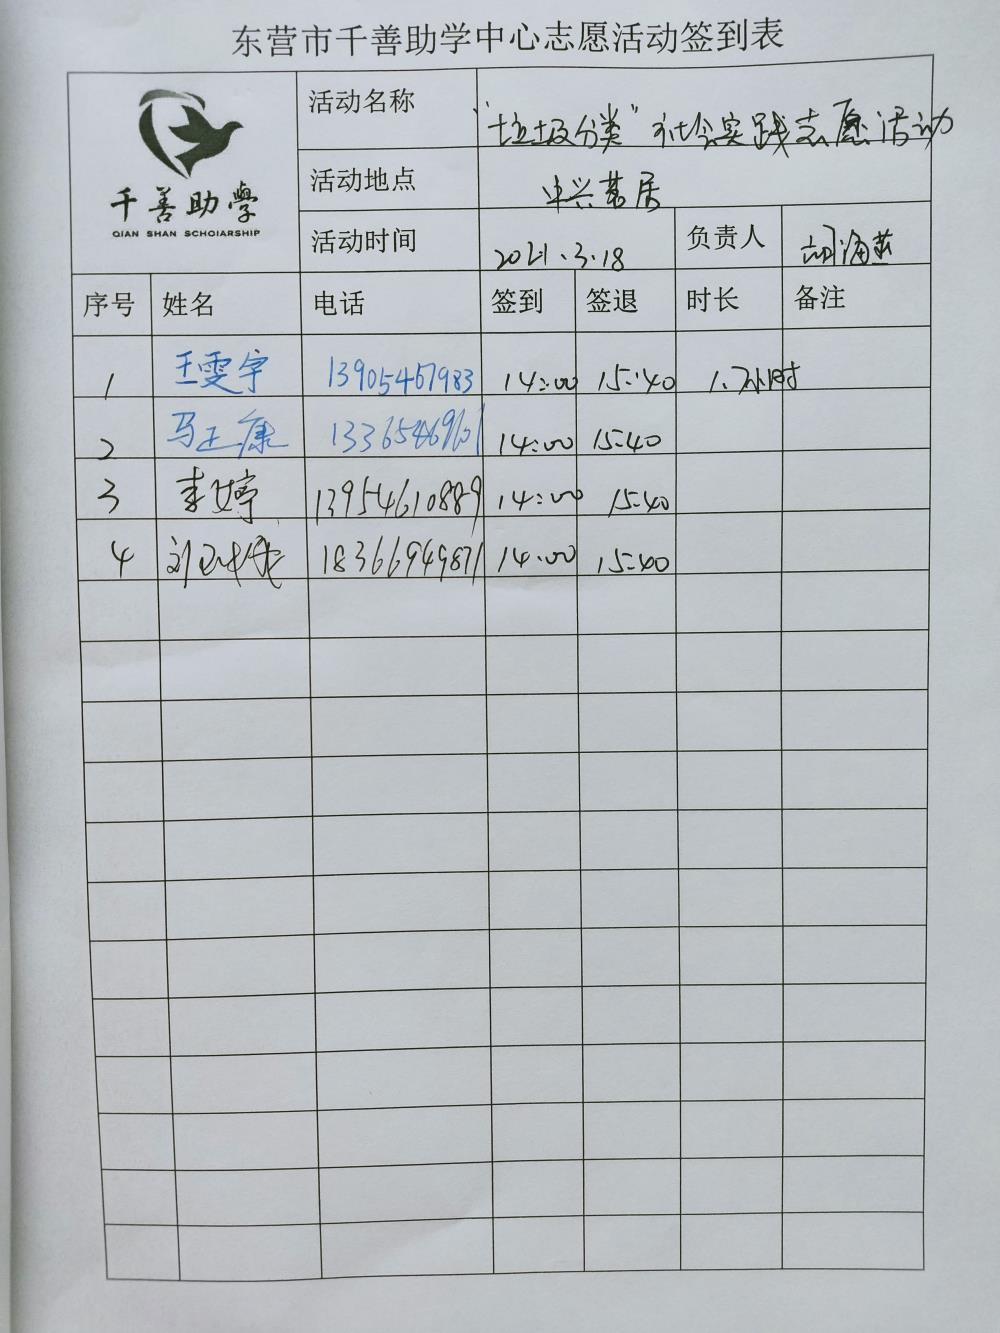 东营市千善助学中心志愿活动签到表
千善助學
QIAN SHAN SCHOIARSHIP
活动名称 "垃圾分类"社会实践志愿活动
活动地点 中兴菁居
活动时间 2021.3.18 负责人 胡海燕
序号 姓名 电话 签到 签退 时长 备注
1 王雯宇 13905457983 14:00 15:40 1.7小时
2 马正康 13365469601 14:00 15:40
3 李婷 13954610889 14:00 15:40
4 刘 18366949871 14:00 15:40